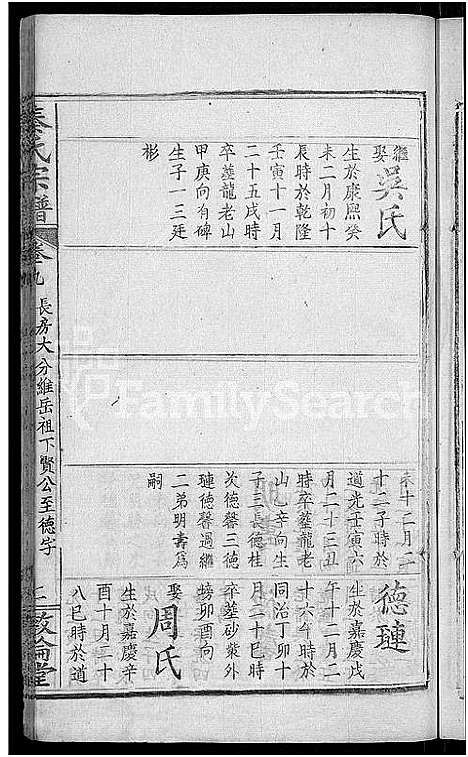 繼娶吳氏
生於康熙癸
未二月初十
辰時於乾隆
壬寅十一月
二十五戌時
卒塟龍老山
甲庚向有碑
生子一三廷
彬
未十二月二
十二子時於
道光壬寅六
月二十三丑
時卒塟龍老
山乙辛向生
子三長德桂
次德馨三德
璉德馨過繼
二弟明壽爲
嗣
德璉
生於嘉慶戊
午十二月二
十六午時於
同治丁卯十
月二十巳時
卒塟砂菓外
塝卯酉向
娶周氏
生於嘉慶辛
酉十月二十
八巳時於道
秦氏宗譜
卷九
長房大分維岳祖下賢公至德字
敦倫堂
FamilySearch